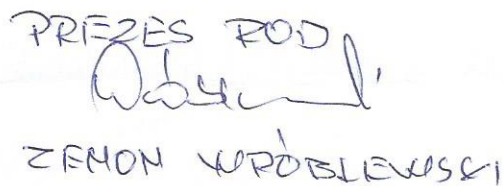 PREZES ROD
ZENON WRÓBLEWSKI